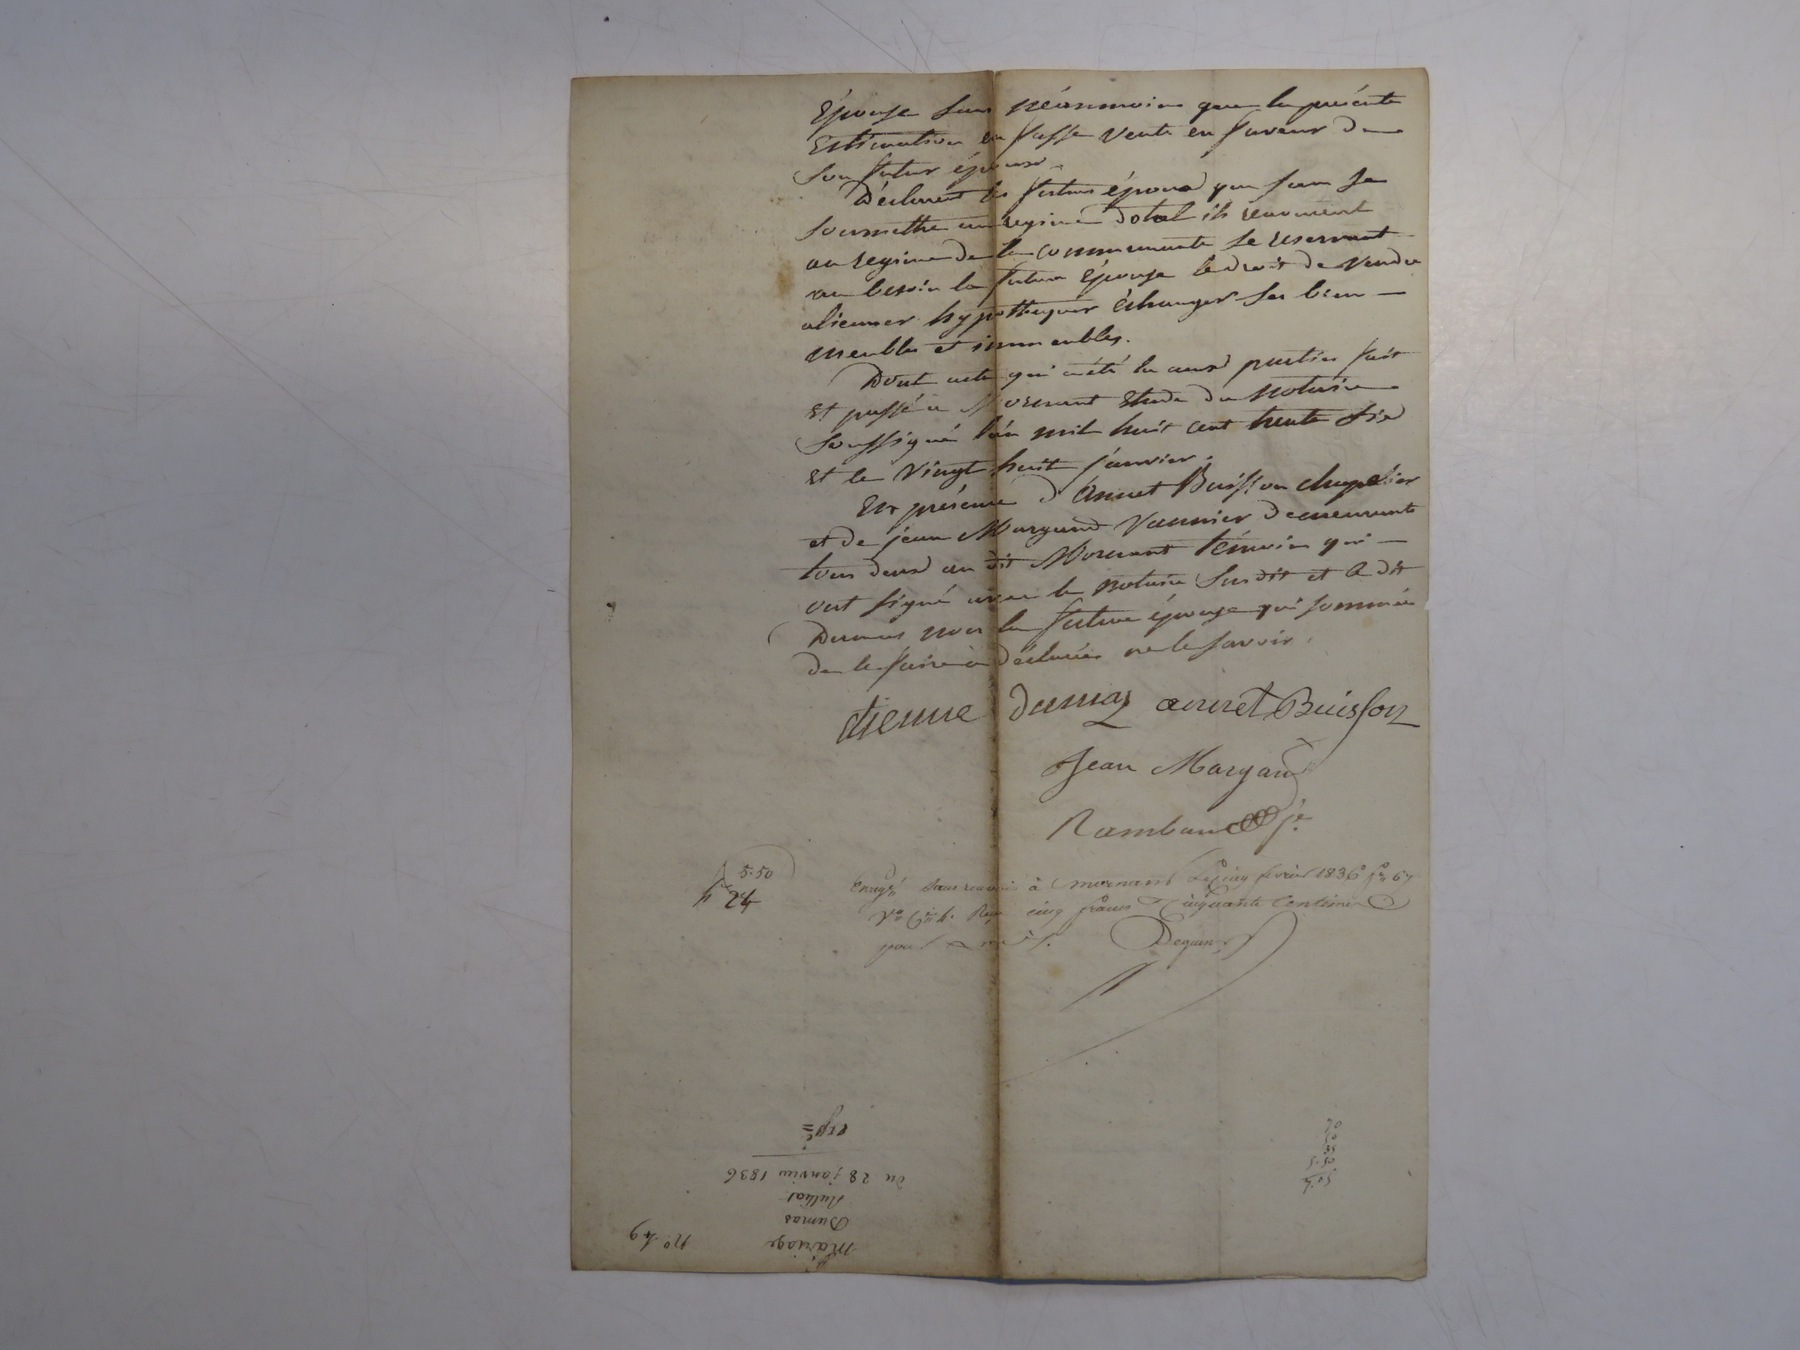 épouse sans néanmoins que la présente
Estimation en fasse vente en faveur de
son futur époux.
Déclarent les futurs époux que sans se
soumettre au regime dotal ils renoncent
au regime de la communauté se reservant
au besoin la future épouse le droit de vendre
alienner hypothequer échanger ses bien
meubles et immeubles.
Dont acte qui a été lu aux parties fait
et passé a Mornant étude du notaire
soussigné l'an mil huit cent trente six
et le vingt huit janvier.
En présence d'annet Buisson chapelier
et de jean Margand vannier demeurants
tous deux au dit Mornant témoins qui
ont signé avec le notaire susdit et le dit
Dumas non la future épouse qui sommée
de le faire a déclarée ne le savoir.
etienne dumas annet Buisson
Jean Margand
5.50
24
Enregé sans renvois à mornant le cinq fevrier 1836 fo 67
Vo Ce 4. Reçu cinq francs cinquante centimes
expé
du 28 janvier 1836
Rulliat
Dumas
Mariage
no. 49